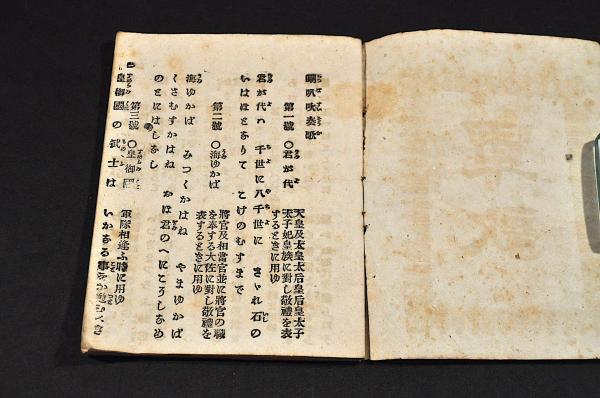 喇叭吹奏歌
第一號 〇君が代
天皇及太皇太后皇后皇太子
太子妃皇族に對し敬禮を表
するときに用ゆ
君が代ハ 千世に八千世に さゞれ石の
いはほとなりて こけのむすまで
第二號 〇海ゆかば
將官及相當官並に將官の職
を奉する大佐に對し敬禮を
表するときに用ゆ
海ゆかば みつくかばね やまゆかば
くさむすかはね かは君のへにこそしなめ
のとにはしなし
第三號 〇皇御國
軍隊相逢ふ時に用ゆ
皇御國の 武士は いかなる事を